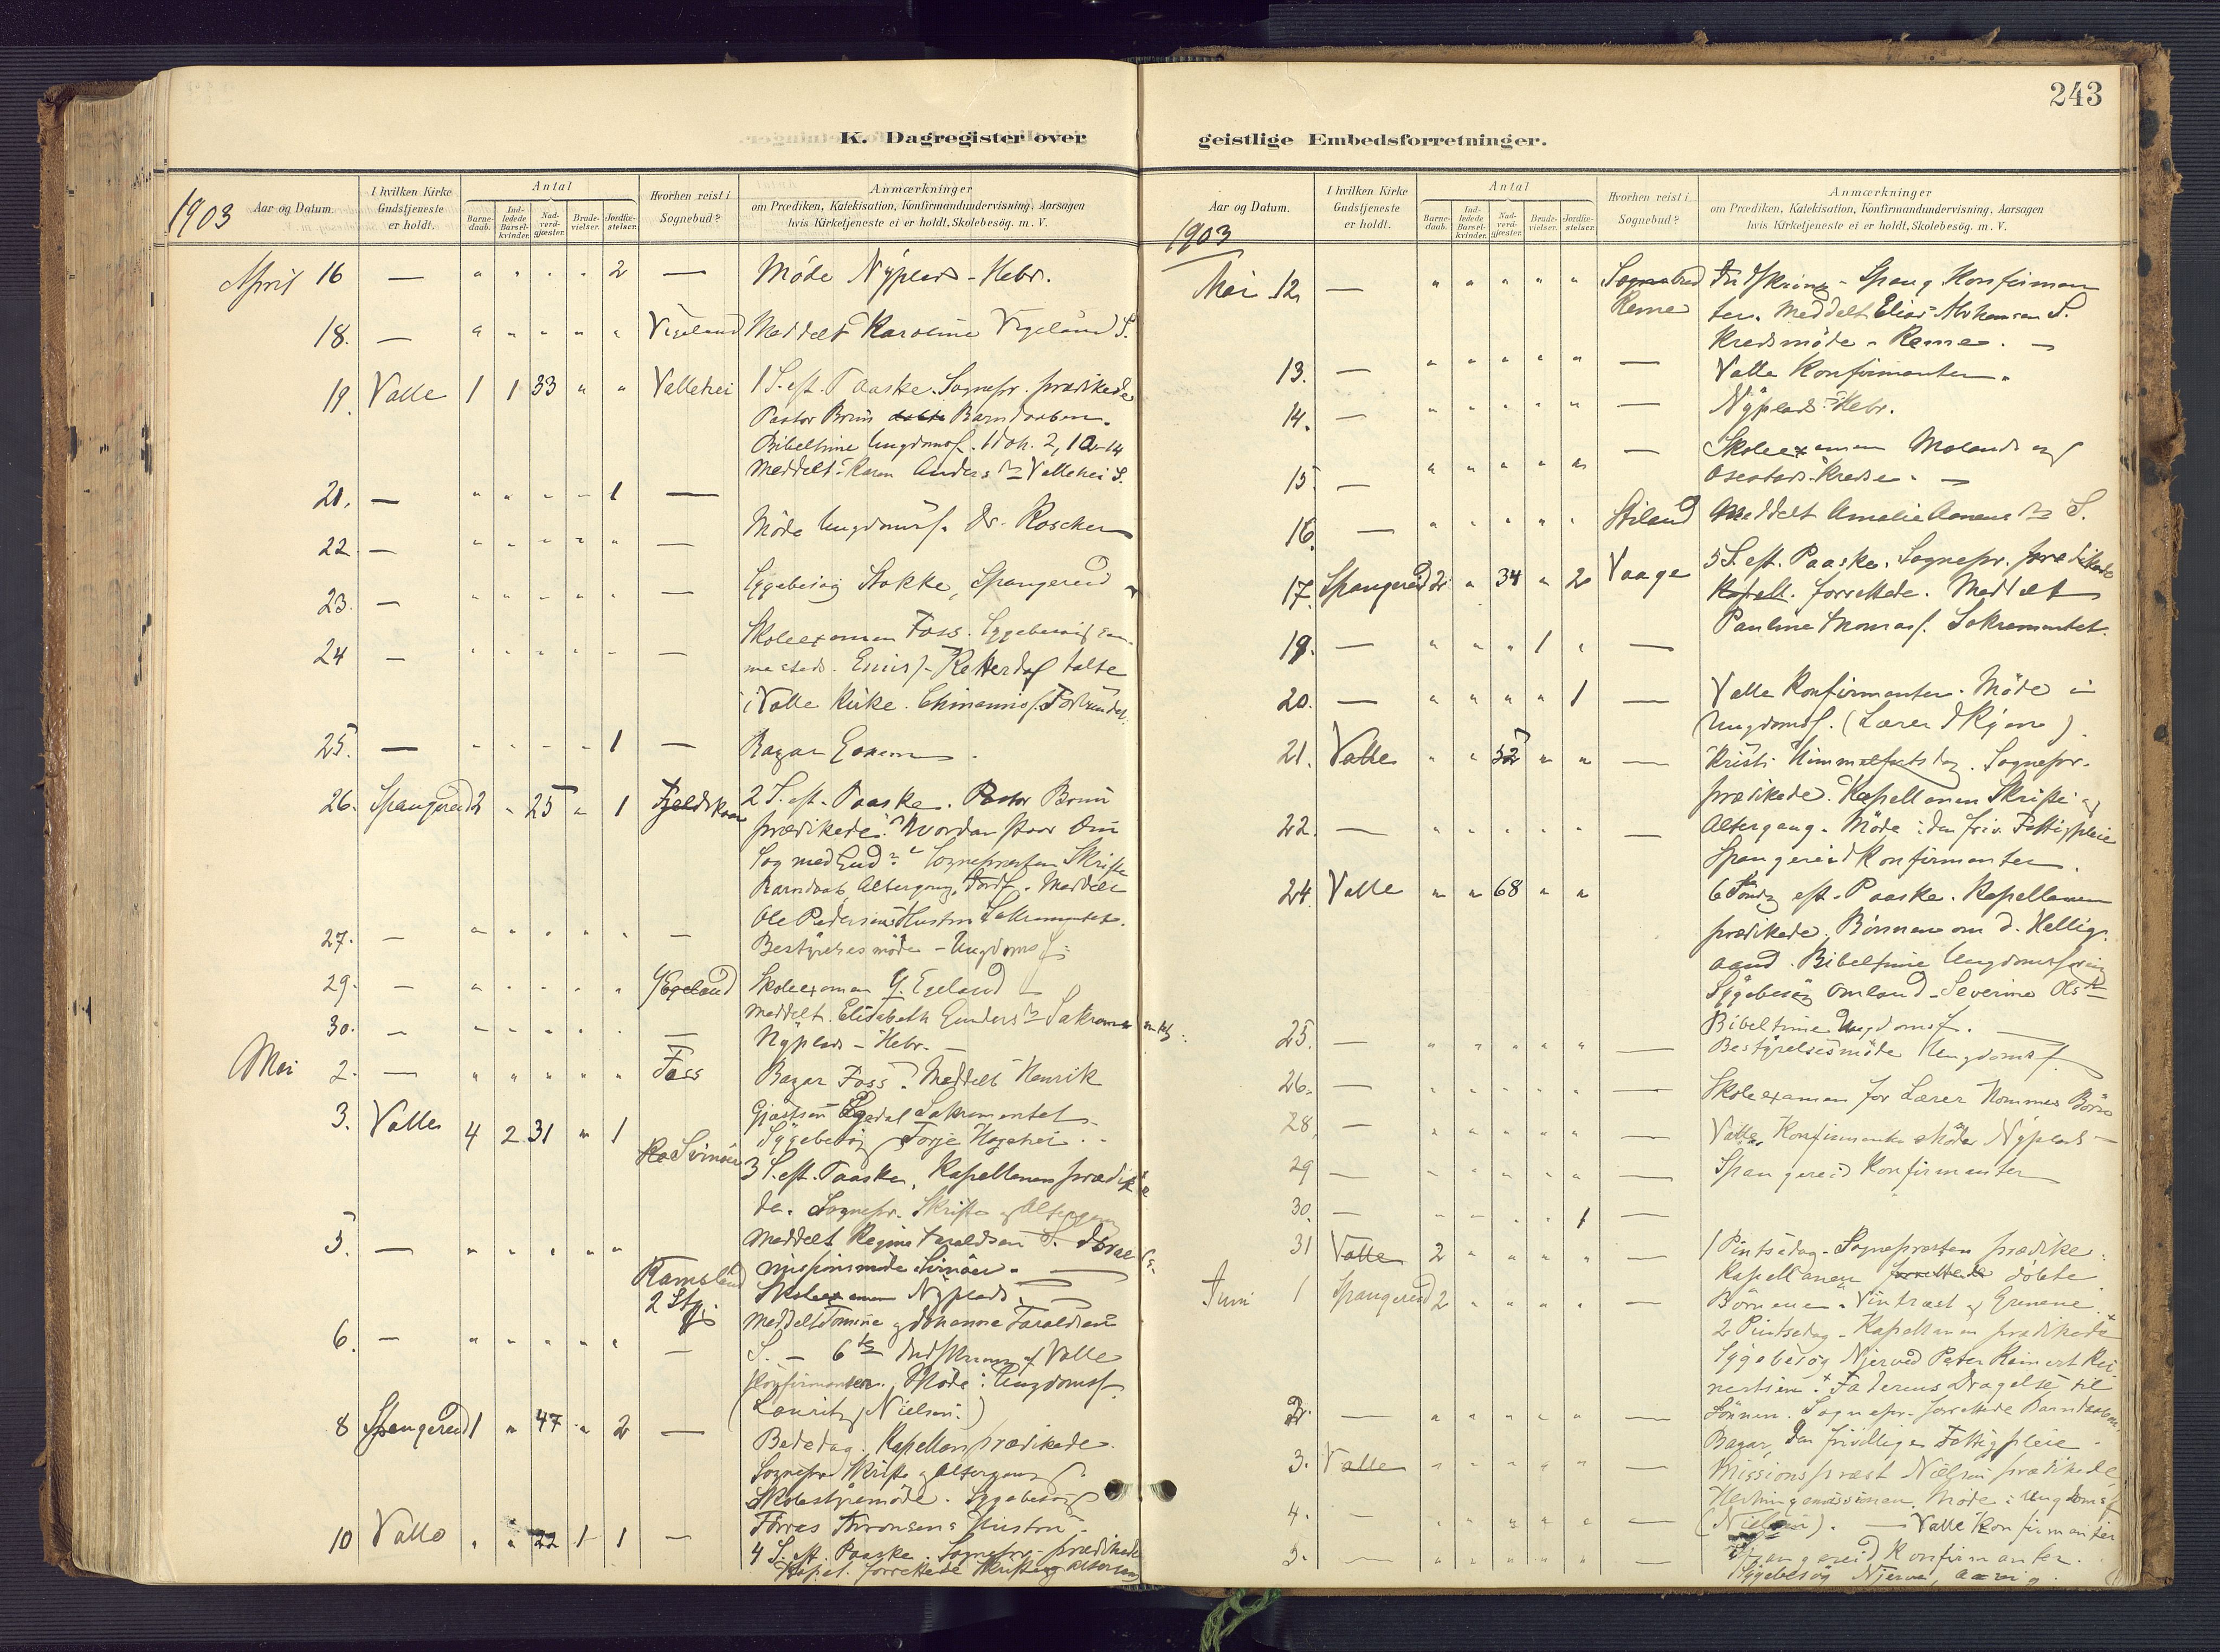 K. Dagregister over
1903
Aar og Datum.
I hvilken Kirke Gudstjeneste er holdt.
Antal
Barnedaab.
Indledede Barselkvinder.
Nadverdgjæster.
Brudevielser.
Jordfæstelser.
Hvorhen reist i Sognebud?
Anmærkninger
om Prædiken, Katekisation, Konfirmandundervisning, Aarsagen
hvis Kirketjeneste ei er holdt, Skolebesög. m. V.
April 16 — " " " " 2 — Möde Nyplads - Hebr.
18. — " " " " " Vigeland Meddelt Karoline Vigeland S.
19. Valle 1 1 33 " " Vallehei 1 S. eft. Paaske. Sognepr. prædikede
Pastor Brun Barndaaben.
Bibeltime Ungdomsf. 1 Joh. 2, 12-14
Meddelt Karen Anders Vallehei S.
21. — " " " " 1 —
Möde Ungdomsf. Dr.
22 — " " " " " —
Sygebesög Stokke, Spangereid
23. — " " " " " —
Skoleexamen Foss. Sygebesög
24 — " " " " " —
talte
i Valle Kirke.
25. — " " " " 1 — Bazar
26. Spangereid 2 " 25 " 1 Fjeldskaar 2 S. eft. Paaske. Pastor Brun
prædikede: Hvordan staar din
Sag med Gud? Sognepresten Skrifte
Barndaab, Altergang, Jordf. Meddelt
Ole Pedersens Hustru Sakramentet.
27. — " " " " " — Bestyrelsesmöde - Ungdomsf.
29. — " " " " " Y. Egeland Skoleexamen Y. Egeland
Meddelt Elisabeth Gunders Sakramentet
30. — " " " " " — Nyplads - Hebr. —
Mai 2. — " " " " " Foss Bazar Foss. Meddelt Henrik
Sakramentet
3. Valle 4 2 31 " 1 Svinöer Sygebesög Torje Hagehei
3 S. eft. Paaske, Kapellanen prædike
de. Sognepr. Skrifte og Altergang
5. — " " " " " Meddelt Regine Taraldsen S.
missionsmöde Svinöer. —
Ramsland
2 Stg. Skoleexamen Nyplads
Meddelt Tomine og Johanne Taraldsen
6. — " " " " " — S. — 6te Indskrivn. af Valle
Konfirmanter. Möde i Ungdomsf.
(Lauritz Nielsen.)
8 Spangereid 1 " 47 " 2 — Bededag. Kapellan prædikede.
Sognepr. Skrifte og Altergang
Skolestyremöde. Sygebesög
10 Valle " " 22 1 1 — Hustru.
4 S. eft. Paaske. Sognepr. prædikede
Kapel. forrettede Skrifte og Altergang
243
geistlige Embedsforretninger.
1903
Aar og Datum.
I hvilken Kirke Gudstjeneste er holdt.
Antal
Barnedaab.
Indledede Barselkvinder.
Nadverdgjæster.
Brudevielser.
Jordfæstelser.
Hvorhen reist i Sognebud?
Anmærkninger
om Prædiken, Katekisation, Konfirmandundervisning, Aarsagen
hvis Kirketjeneste ei er holdt, Skolebesög. m. V.
Mai 12 — " " " " " Sognebud Indskrivn. - Spang. Konfirman
Reme ter. Meddelt Elias S.
Kredsmöde - Reme. —
13. — " " " " " — Valle Konfirmanter.
14. — " " " " " — Nyplads - Hebr.
Skoleexamen Molands og
15. — " " " " " — Osestads Kredse. —
16. — " " " " " Stiland Meddelt Amalie S.
17. Spangereid 2 " 34 " 2 Vaage 5 S. eft. Paaske. Sognepr. prædikede
Kapell. forrettede. Meddelt
Pauline Sakramentet.
19. — " " " 1 " —
20. — " " " " 1 — Valle Konfirmanter. Möde i
Ungdomsf. (Lærer)
21. Valle " " 52 " " — Kristi Himmelfartsdag. Sognepr.
prædikede. Kapellanen Skrifte og
22. — " " " " " — Altergang. Möde i den friv. Fattigpleie
Spangereid Konfirmanter.
24. Valle " " 68 " " 6 Söndag eft. Paaske. Kapellanen
prædikede, Bönnen om d. Hellig-
aand. Bibeltime Ungdomsforening
Sygebesög Omland - Severine
Bibeltime Ungdomsf. —
25. — " " " " " — Bestyrelsesmöde Ungdomsf.
26. — " " " " " — Skoleexamen for Lærer Hommes Börn
28. — " " " " " — Valle Konfirmanter Möde Nyplads -
29 — " " " " " — Spangereid Konfirmanter
30. — " " " " 1 —
31 Valle 2 " " " " — 1 Pintsedag - Sognepresten prædike:
Kapellanen forrettede döbte
Juni 1 Spangereid 2 " " " " — Börnene. Vintræet og Grenene.
2 Pintsedag - Kapellanen prædikede
Sygebesög Njerved Peter Reinert Rei-
nertsen. Faderens Dragelse til
2. — " " " " " — Sönnen. Sognepr. forrettede Barndaaben
Bazar, den frivillige Fattigpleie.
3. Valle " " " " " — Missionsprest Nielsen prædikede
Hedningemissionen. Möde i Ungdomsf.
4. — " " " " " — (Nielsen). — Valle Konfirmanter
5. — " " " " " — Spangereid Konfirmanter.
Sygebesög Njerve,